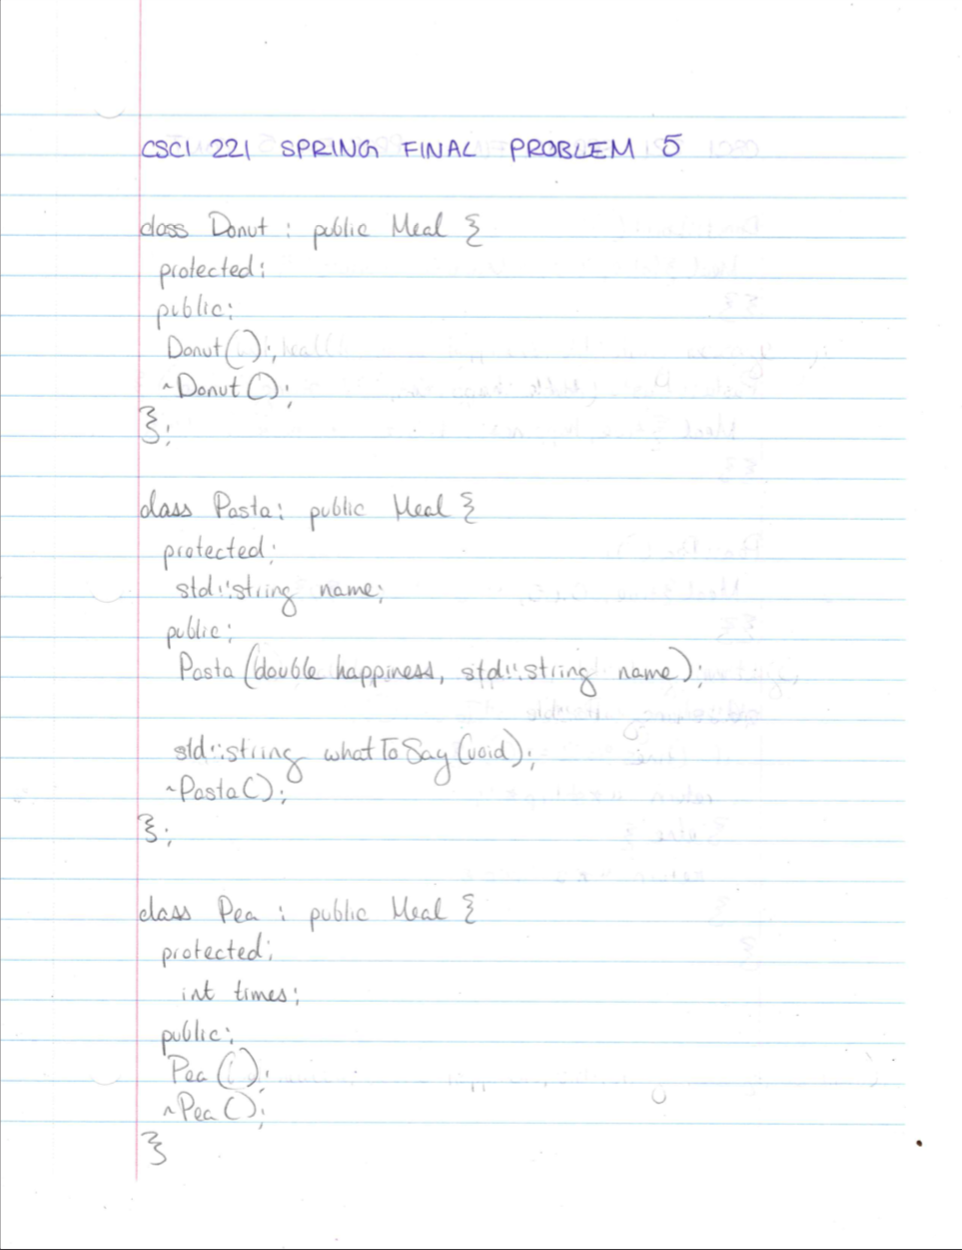 CSCI 221 SPRING FINAL PROBLEM 5
class Donut : public Meal {
protected:
public:
Donut();
~Donut();
};
class Pasta: public Meal {
protected:
std::string name;
public:
Pasta (double happiness, std::string name);
std::string whatToSay(void);
~Pasta();
};
class Pea : public Meal {
protected:
int times;
public:
Pea();
~Pea();
}